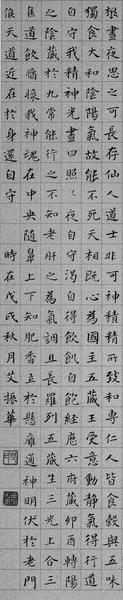 根晝夜思之可長存仙人道士非可神精所致和專仁人皆食穀與五味
獨食大和陰陽氣故能不死天相既心為國主五藏王受意動靜氣得行道
自守我精神光晝日昭昭夜自守渴得飲飢自飽經歷六府藏卯酉轉陽
之陰藏於九常能行之不知老肝之為氣調且長羅列五藏生三光上合三
焦道飲醬漿我神魂在中央隨鼻上下知肥香立於懸膺通神明伏於老門
候天道近在於身還自守 時在戊戌秋月艾振華